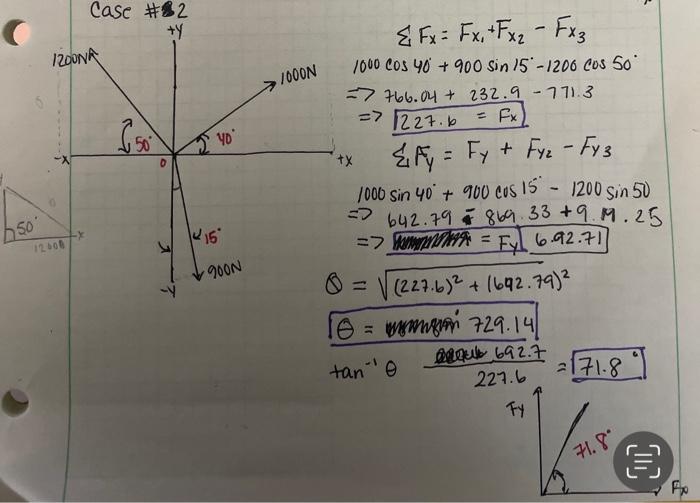 Case #2
+Y
1200N
1000N
50°
40°
-x
0
+x
15°
900N
-Y
50°
1200N
x
Σ Fx = Fx1 + Fx2 - Fx3
1000 cos 40° + 900 sin 15° - 1200 cos 50°
=> 766.04 + 232.9 - 771.3
=> 227.6 = Fx
Σ Fy = Fy + Fy2 - Fy3
1000 sin 40° + 900 cos 15° - 1200 sin 50
=> 642.79 - 869.33 + 919.25
=> = Fy 692.71
θ = √(227.6)² + (692.79)²
θ = 729.14
tan⁻¹ θ 692.7 / 227.6 = 71.8°
Fy
71.8°
Fx